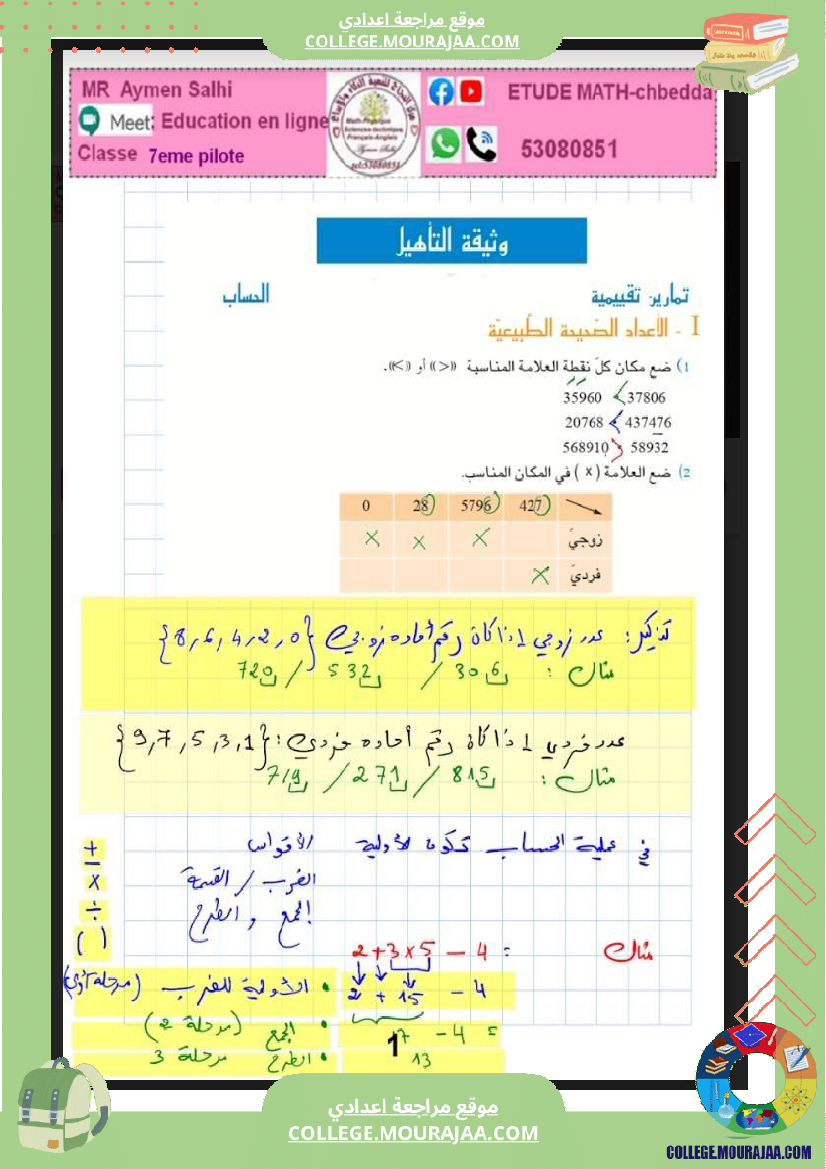 موقع مراجعة اعدادي
COLLEGE.MOURAJAA.COM
MR Aymen Salhi
Meet: Education en ligne
Classe 7eme pilote
ETUDE MATH-chbedda
53080851
Math-Physique
Sciences-technique
Français-Anglais
Aymen Salhi
tel:53080851
وثيقة التأهيل
تمارين تقييمية
الحساب
I - الأعداد الصّحيحة الطّبيعيّة
1) ضع مكان كلّ نقطة العلامة المناسبة «<» أو «>».
35960 < 37806
20768 < 437476
568910 > 58932
2) ضع العلامة (x) في المكان المناسب.
0 28 5796 427
زوجيّ x x x
فرديّ x
تذكير: عدد زوجي إذا كان رقم آحاده زوجي {0, 2, 4, 6, 8}
مثال: 306 / 532 / 720
عدد فردي إذا كان رقم آحاده فردي: {1, 3, 5, 7, 9}
مثال: 815 / 271 / 719
في عملية الحساب تكون الأولية الأقواس
الضرب / القسمة
الجمع و الطرح
+
-
x
÷
( )
مثال 2+3x5 - 4 =
2 + 15 - 4
• الأولية للضرب (مرحلة أولى)
17 - 4 =
• الجمع (مرحلة 2)
13
• الطرح مرحلة 3
موقع مراجعة اعدادي
COLLEGE.MOURAJAA.COM
COLLEGE.MOURAJAA.COM